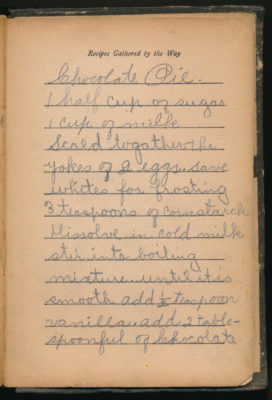 Recipes Gathered by the Way
Chocolate Pie.
1 half cup of sugar
1 cup of milk
Scald togather the
yokes of 2 eggs. save
whites for frosting
3 teaspoons of cornstarch
dissolve in cold milk
stir into boiling
mixture until it is
smooth add ½ teaspoon
vanilla. add 2 table-
spoonful of Chocolate